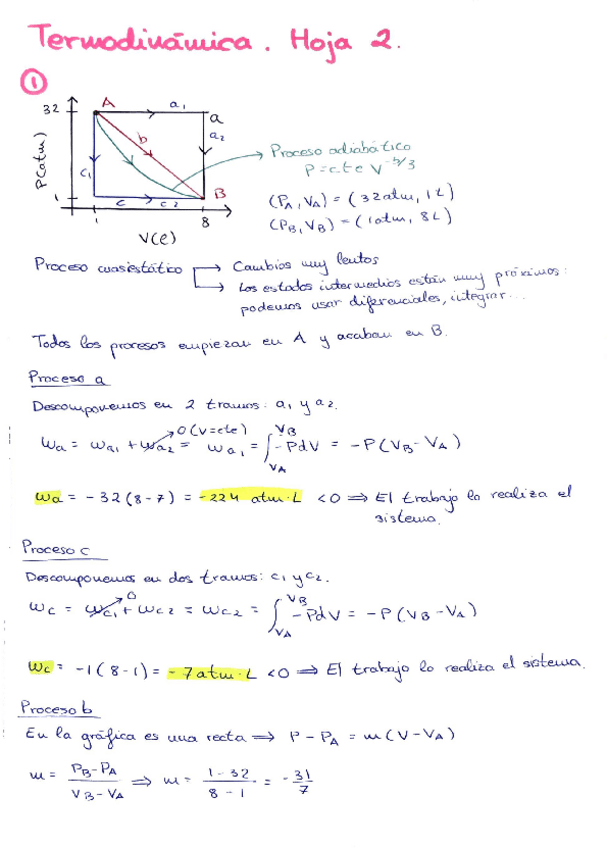 Termodinámica. Hoja 2.
①
A
a₁
32
a
a₂
b
P(atm)
c₁
Proceso adiabático
P = cte V^-5/3
B
(P_A, V_A) = (32atm, 1L)
1
c
c₂
(P_B, V_B) = (1atm, 8L)
1
8
V(l)
Proceso cuasiestático → Cambios muy lentos
→ Los estados intermedios están muy próximos:
podemos usar diferenciales, integrar...
Todos los procesos empiezan en A y acaban en B.
Proceso a
Descomponemos en 2 tramos: a₁ y a₂.
0 (V=cte)
Wa = Wa₁ + Wa₂ = Wa₁ = ∫_VA^VB -PdV = -P(V_B - V_A)
Wa = -32(8-7) = -224 atm·L <0 ⇒ El trabajo lo realiza el
sistema.
Proceso c
Descomponemos en dos tramos: c₁ y c₂.
0
Wc = Wc₁ + Wc₂ = Wc₂ = ∫_VA^VB -PdV = -P(V_B - V_A)
Wc = -1(8-1) = -7atm·L <0 ⇒ El trabajo lo realiza el sistema.
Proceso b
En la gráfica es una recta ⇒ P - P_A = m(V - V_A)
m = (P_B - P_A)/(V_B - V_A) ⇒ m = (1-32)/(8-1) = -31/7